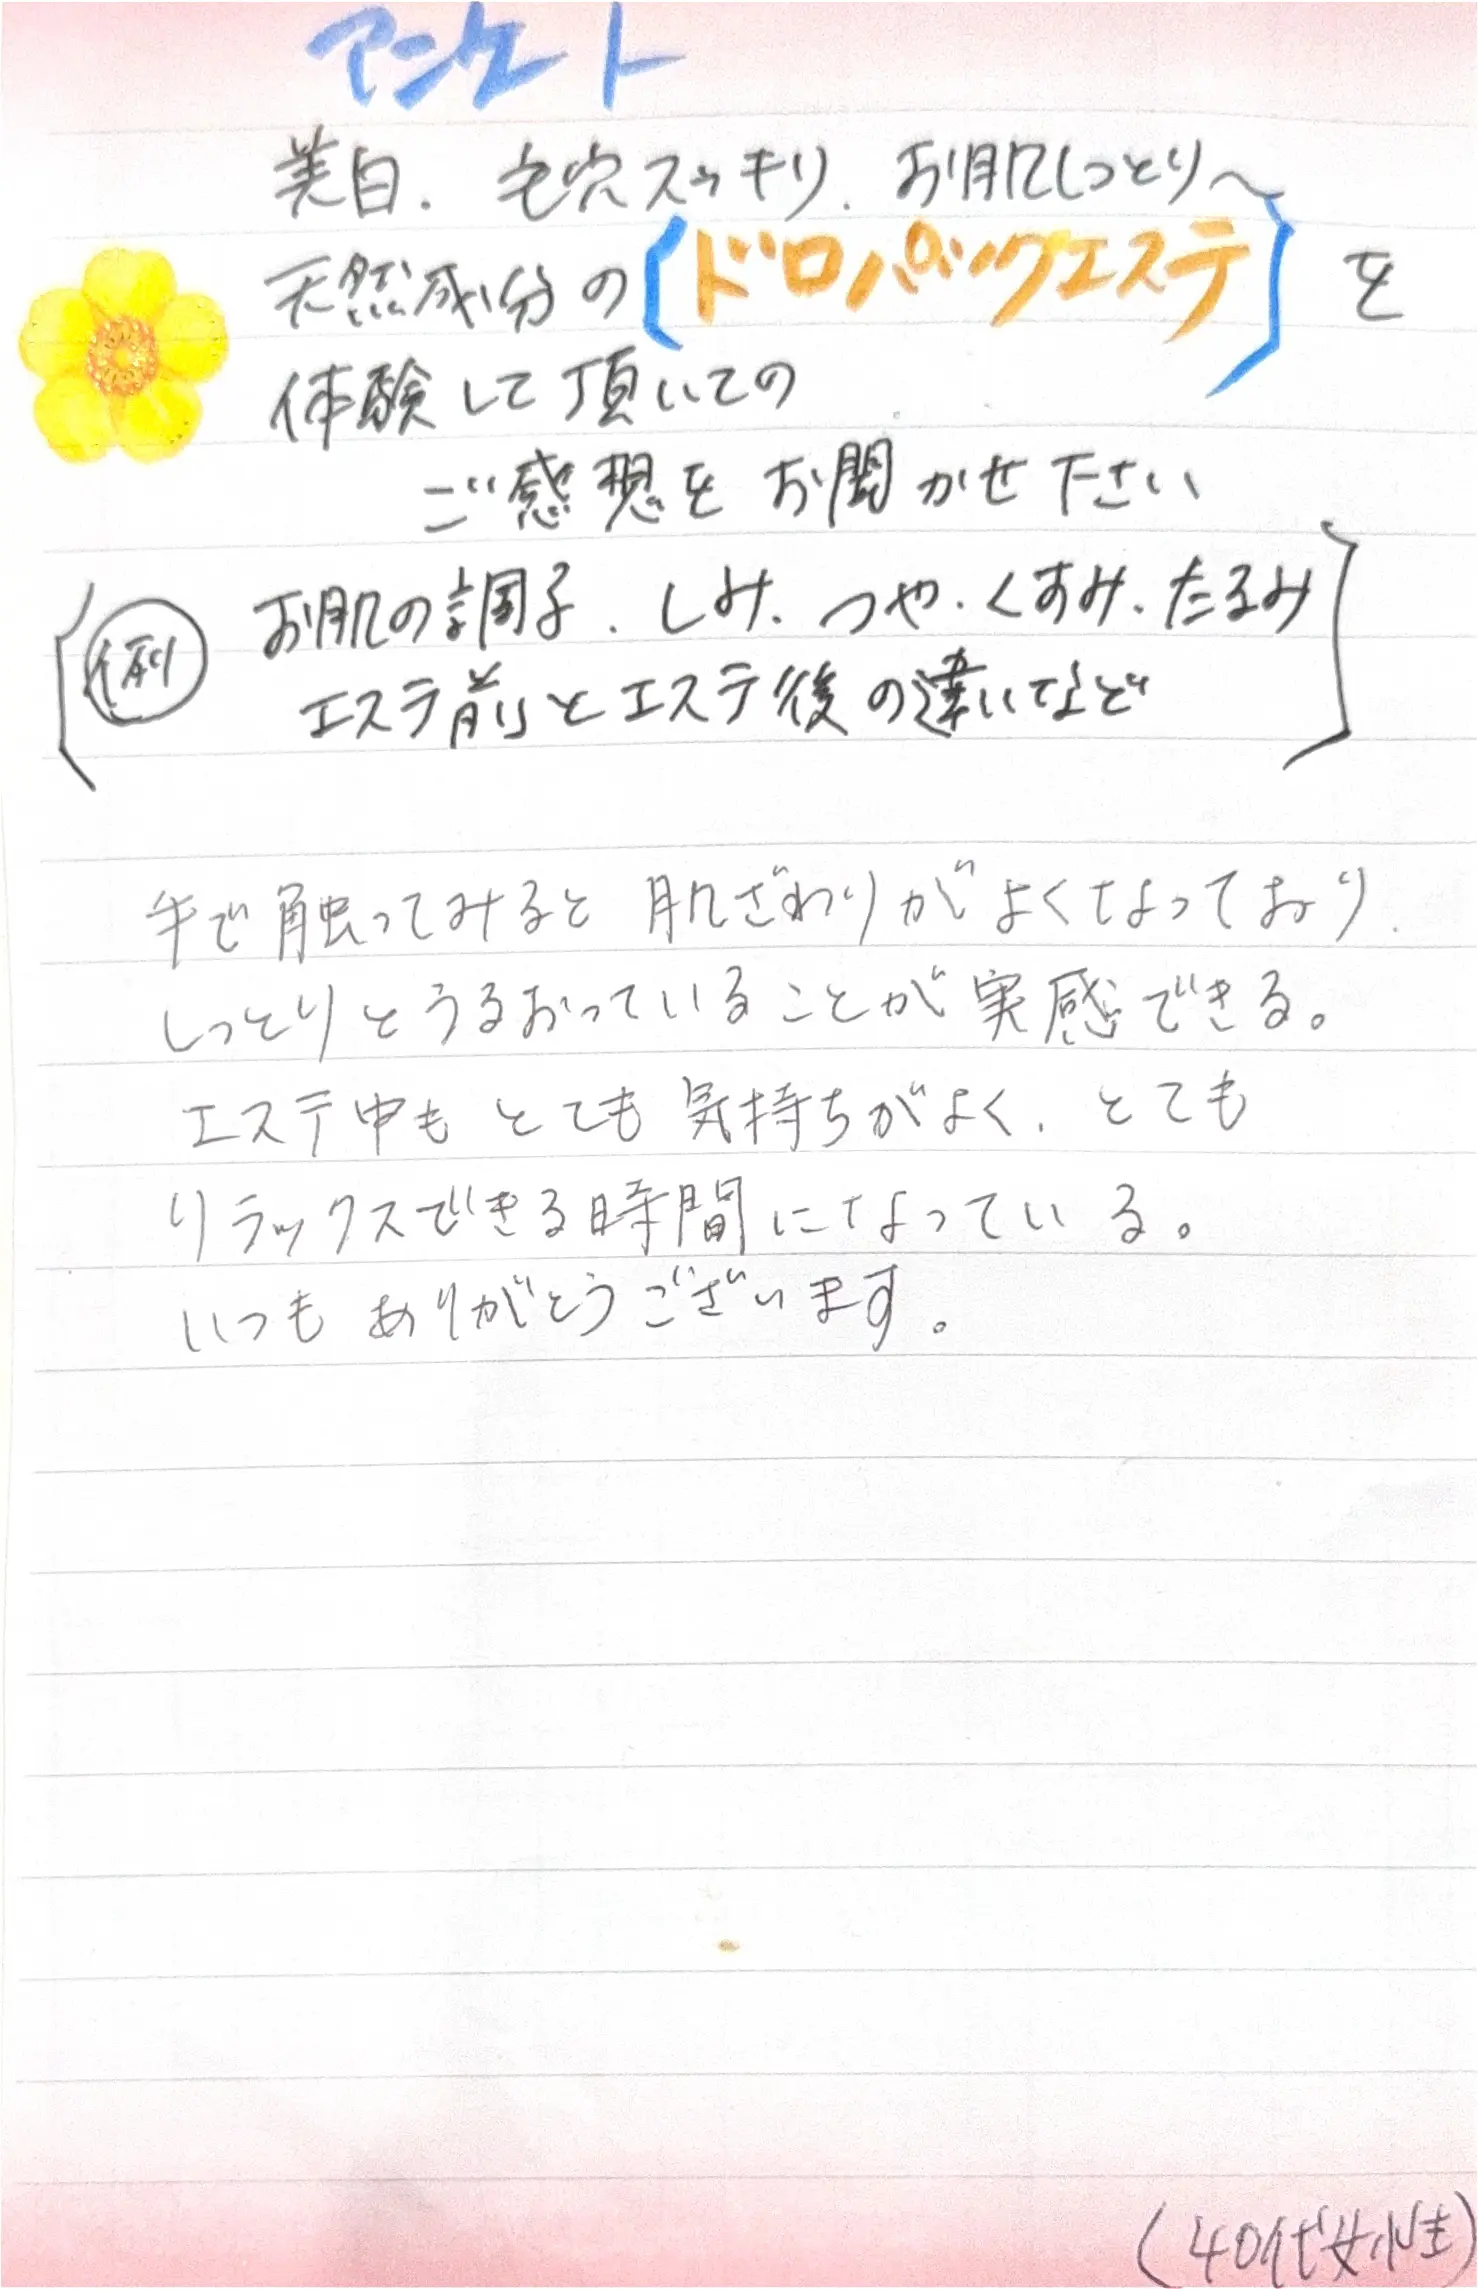 アンケート
美白、毛穴スッキリ、お肌しっとり〜
天然成分の[ドロパックエステ]を
体験して頂いての
ご感想をお聞かせ下さい
[例 お肌の調子、しみ、つや、くすみ、たるみ
エステ前とエステ後の違いなど]
手で触ってみると肌ざわりがよくなっており、
しっとりとうるおっていることが実感できる。
エステ中もとても気持ちがよく、とても
リラックスできる時間になっている。
いつもありがとうございます。
(40代女性)